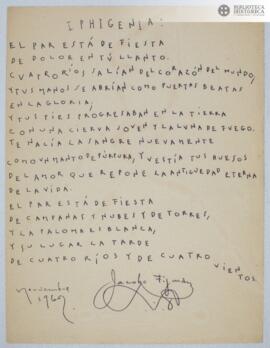 BIBLIOTECA
HISTÓRICA
IPHIGENIA:
EL PAR ESTÁ DE FIESTA
DE DOLOR EN TU LLANTO.
CUATRO RÍOS SALÍAN DEL CORAZÓN DEL MUNDO,
Y TUS MANOS SE ABRÍAN COMO PUERTAS BEATAS
EN LA GLORIA;
Y TUS PIES PROGRESABAN EN LA TIERRA
CON UNA CIERVA JOVEN Y LA LUNA DE FUEGO.
TE NACÍA LA SANGRE NUEVAMENTE
COMO UN MANTO DE PÚRPURA, Y VESTÍA TUS HUESOS
DEL AMOR QUE REPONE LA ANTIGÜEDAD ETERNA
DE LA VIDA.
EL PAR ESTÁ DE FIESTA
DE CAMPANAS Y NUBES Y DE TORRES,
Y LA PALOMA BLANCA,
Y SU LUGAR LA TARDE
DE CUATRO RÍOS Y DE CUATRO VIENTOS
Noviembre
Jacobo Fijman